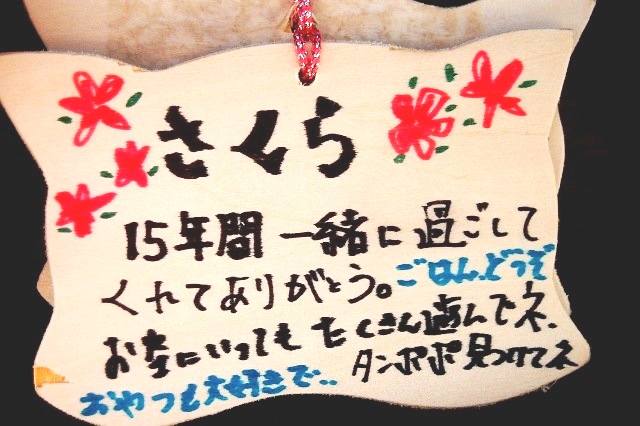 さくら
15年間 一緒に過ごして
くれてありがとう。ごはん、どうぞ
お空にいっても たくさん遊んでネ、
おやつも大好きで‥ タンポポ見つけてネ